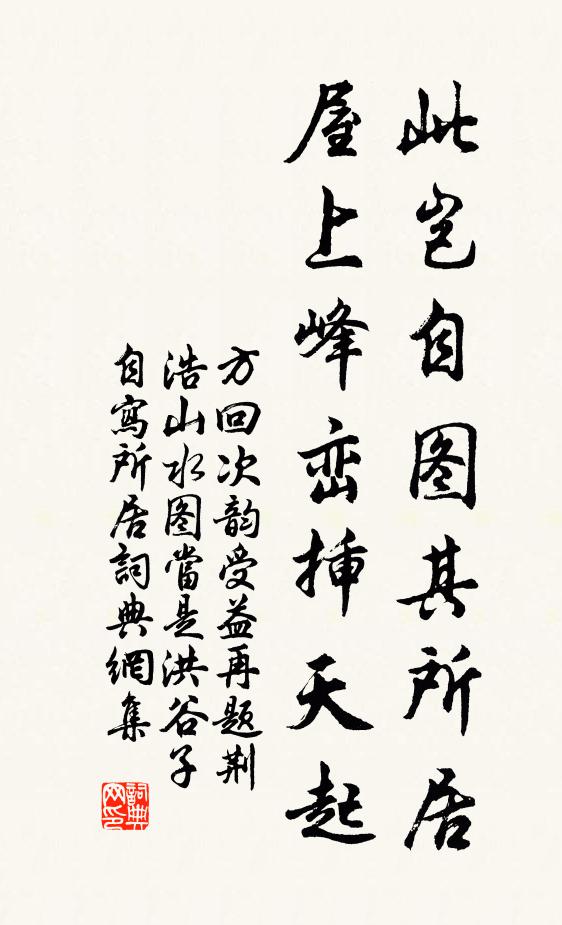 此岂自图其所居
屋上峰峦插天起
方回次韵受益再题荆
浩山水图當是洪谷子
自寫所居詞典網集
詞典网印